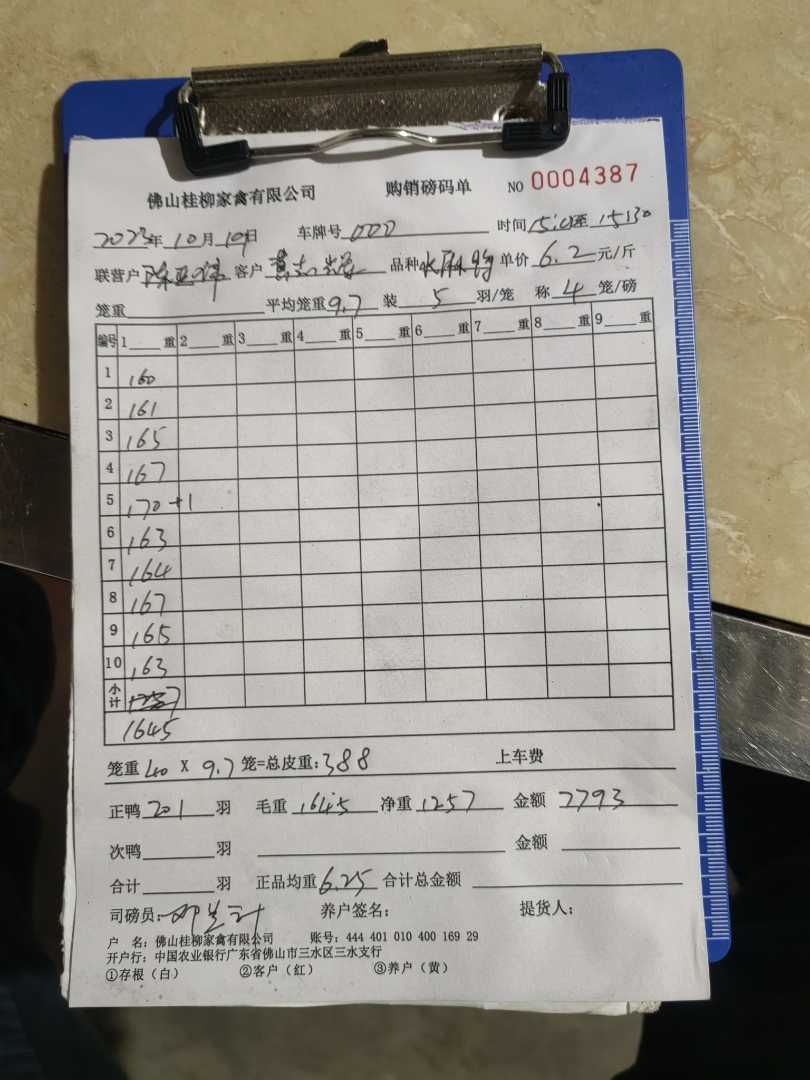 佛山桂柳家禽有限公司 购销磅码单 NO 0004387
2023年10月19日 车牌号 000 时间 至15:30
联营户 客户 品种 单价 6.2 元/斤
笼重 平均笼重9.7 装 5 羽/笼 称 4 笼/磅
编号 1 重 2 重 3 重 4 重 5 重 6 重 7 重 8 重 9 重
1 160
2 161
3 165
4 167
5 170 +1
6 163
7 164
8 167
9 165
10 163
小计
1645
笼重 40 X 9.7 笼=总皮重:388 上车费
正鸭 201 羽 毛重 1645 净重 1257 金额 7793
次鸭 羽 金额
合计 羽 正品均重 6.25 合计总金额
司磅员: 养户签名: 提货人:
户 名: 佛山桂柳家禽有限公司 账号: 444 401 010 400 169 29
开户行: 中国农业银行广东省佛山市三水区三水支行
①存根(白) ②客户(红) ③养户(黄)